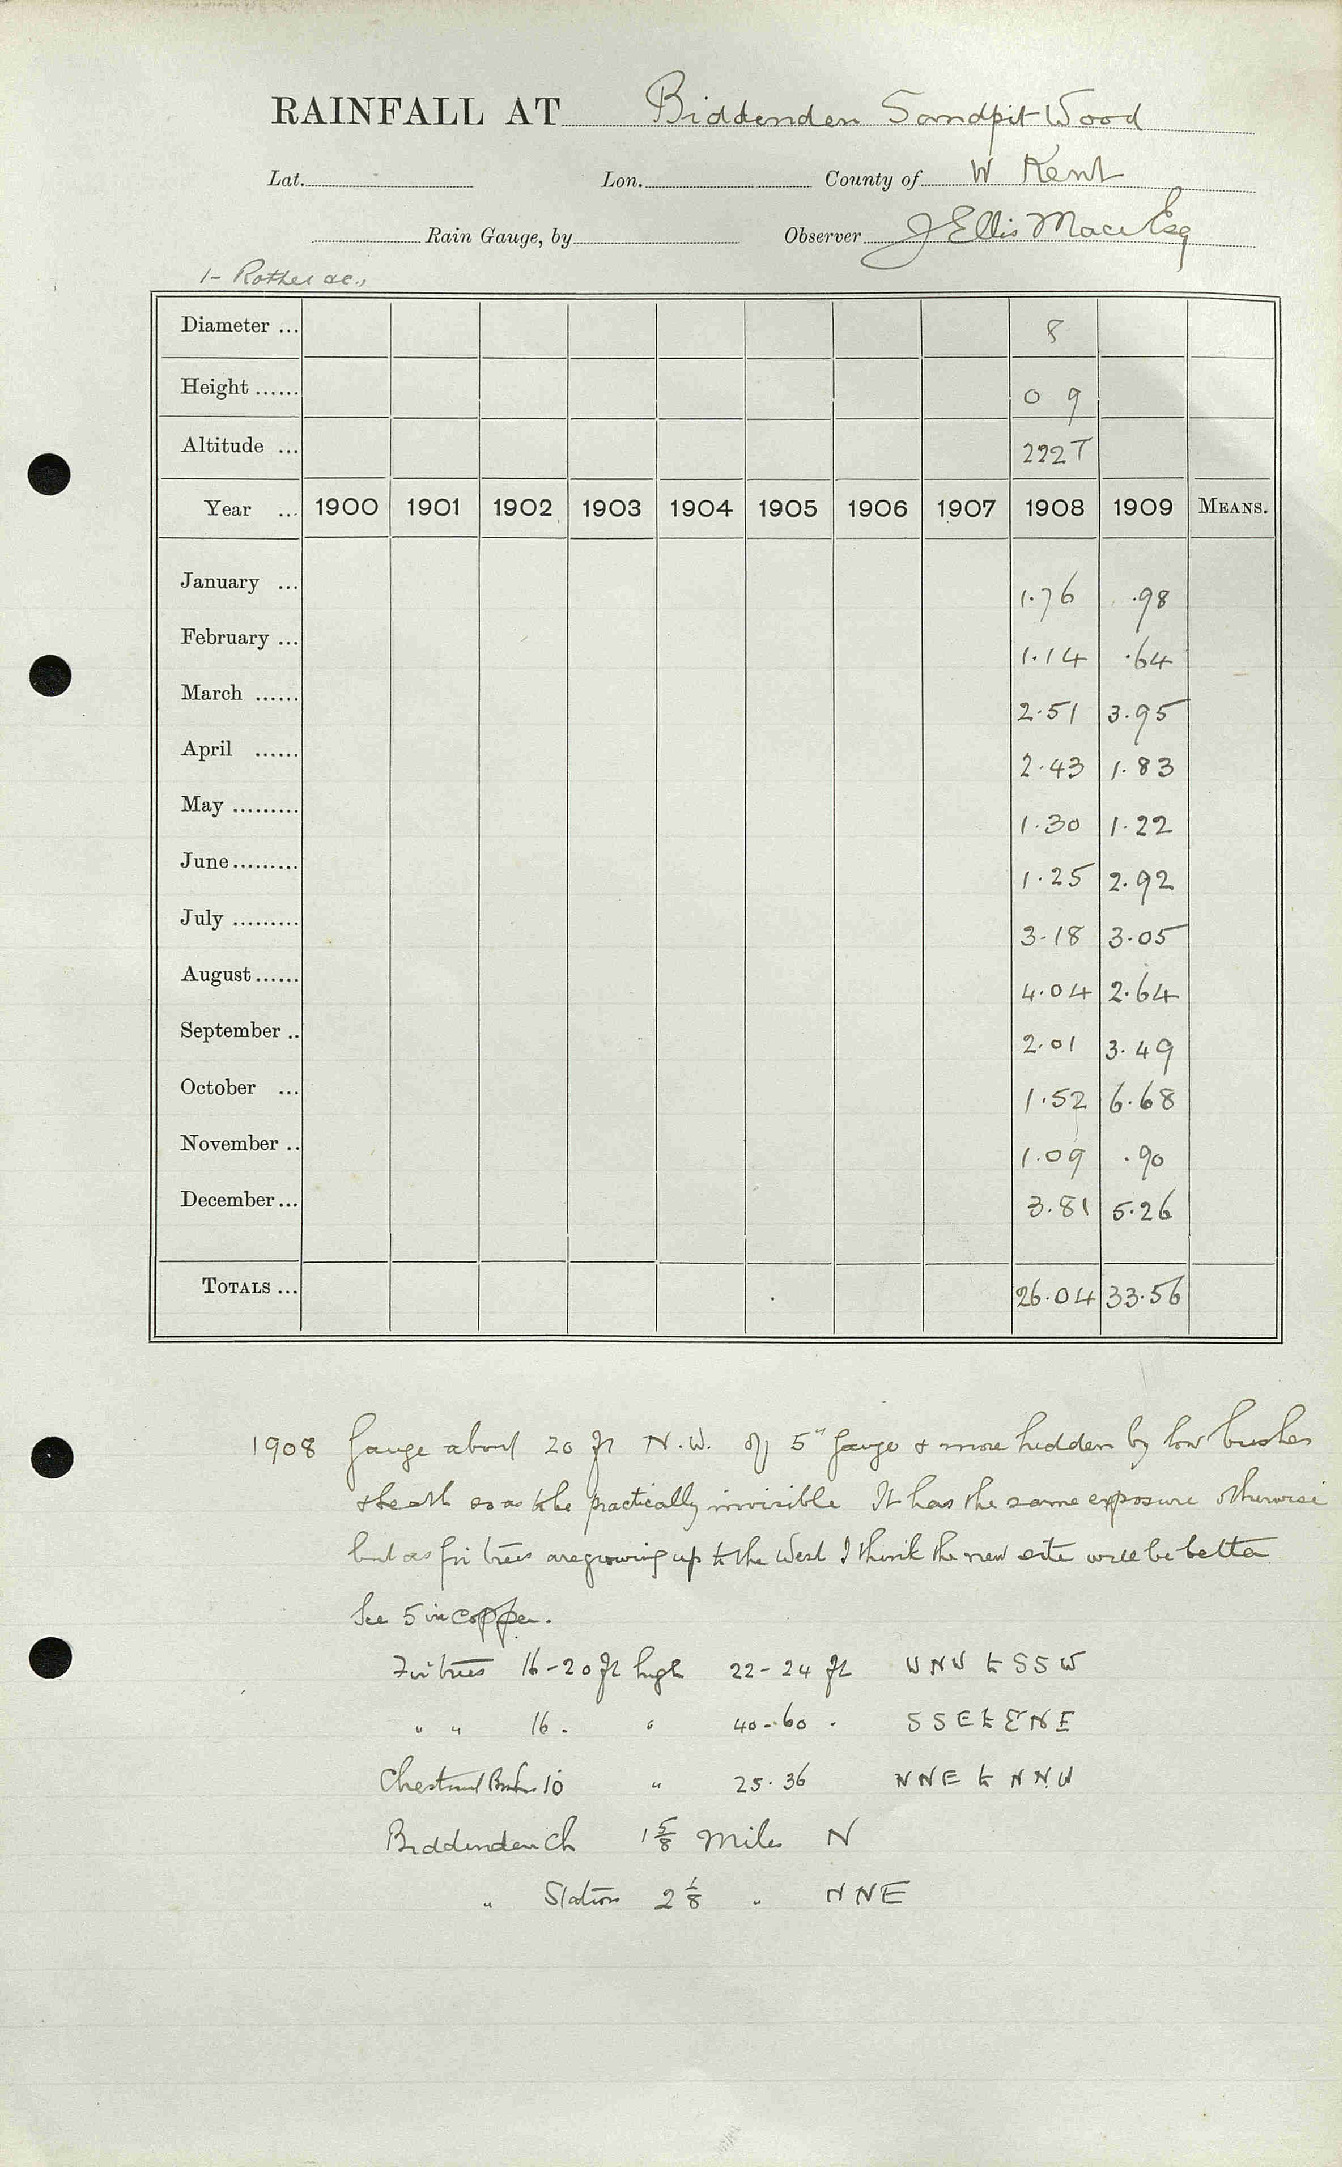 RAINFALL AT Biddenden Sandpit Wood
Lat. Lon. County of W Kent
Rain Gauge, by Observer J Ellis Mace Esq
1- Rother &c.,
Diameter ... 8
Height ...... 0 9
Altitude ... 222 T
Year ... 1900 1901 1902 1903 1904 1905 1906 1907 1908 1909 MEANS.
January ... 1.76 .98
February ... 1.14 .64
March ...... 2.51 3.95
April ...... 2.43 1.83
May ......... 1.30 1.22
June ......... 1.25 2.92
July ......... 3.18 3.05
August ...... 4.04 2.64
September .. 2.01 3.49
October ... 1.52 6.68
November .. 1.09 .90
December ... 3.81 5.26
TOTALS ... 26.04 33.56
1908 Gauge about 20 ft N.W. of 5" gauge & more hidden by low bushes
& heath so as to be practically invisible It has the same exposure otherwise
but as fir trees are growing up to the West I think the new site will be better
See 5 in copper.
Fir trees 16-20 ft high 22-24 ft WNW to SSW
" " 16 . " 40-60 . SSE to ENE
Chestnut 10 " 25.36 NNE to NNW
Biddenden Ch 1 5/8 miles N
" Station 2 1/8 " NNE